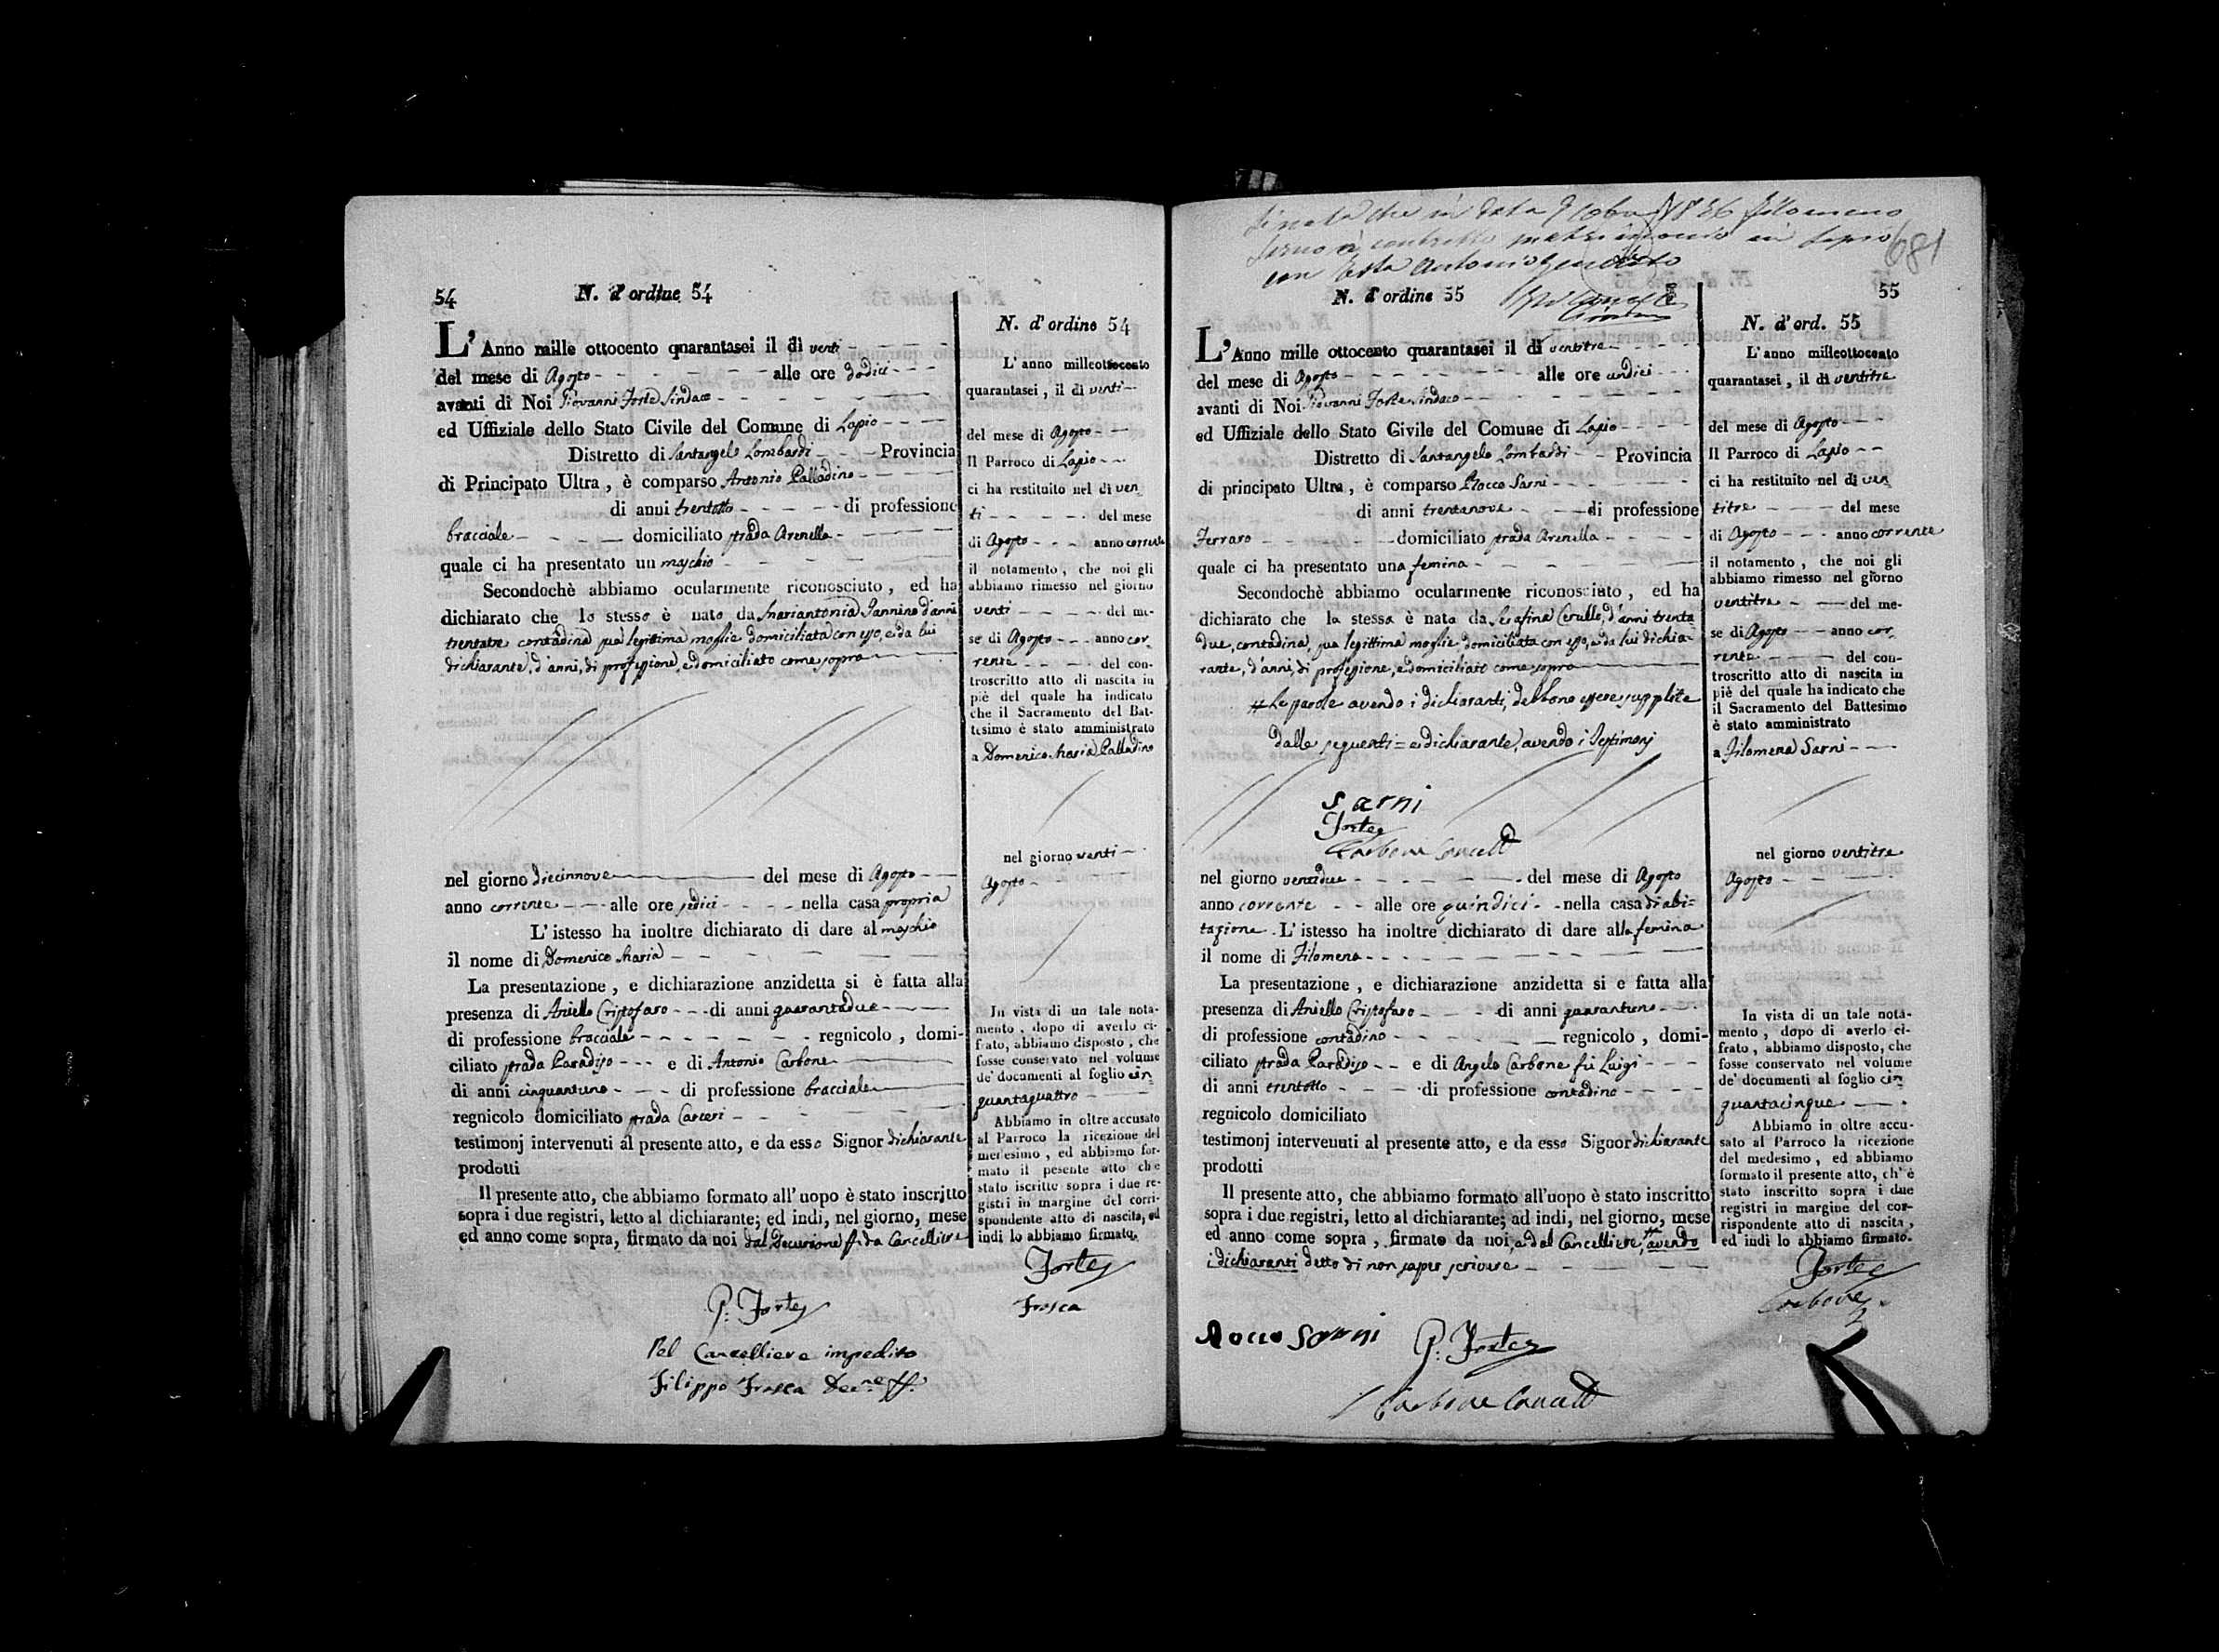 54
N. d'ordine 54
L'Anno mille ottocento quarantasei il dì venti
del mese di Agosto alle ore dodici
avanti di Noi Giovanni Forte Sindaco
ed Uffiziale dello Stato Civile del Comune di Lapio
Distretto di Santangelo Lombardi Provincia
di Principato Ultra, è comparso Antonio Palladino
di anni trentotto di professione
bracciale domiciliato strada Arenella
quale ci ha presentato un maschio
Secondochè abbiamo ocularmente riconosciuto, ed ha
dichiarato che lo stesso è nato da Mariantonia Iannino d'anni
trentatre contadina sua legittima moglie domiciliata con esso, e da lui
dichiarante, d'anni, di professione, e domiciliato come sopra
nel giorno diecinnove del mese di Agosto
anno corrente alle ore sedici nella casa propria
L'istesso ha inoltre dichiarato di dare al maschio
il nome di Domenico Maria
La presentazione, e dichiarazione anzidetta si è fatta alla
presenza di Aniello Cristofaro di anni quarantadue
di professione bracciale regnicolo, domi-
ciliato strada Paradiso e di Antonio Carbone
di anni cinquantuno di professione bracciale
regnicolo domiciliato strada Carceri
testimonj intervenuti al presente atto, e da esso Signor dichiarante
prodotti
Il presente atto, che abbiamo formato all'uopo è stato inscritto
sopra i due registri, letto al dichiarante; ed indi, nel giorno, mese
ed anno come sopra, firmato da noi dal Decurione ff. da Cancelliere
G. Forte
Pel Cancelliere impedito
Filippo Frasca Dec.ne ff.
N. d'ordine 54
L'anno milleottocento
quarantasei, il dì venti
del mese di Agosto
Il Parroco di Lapio
ci ha restituito nel dì ven
ti del mese
di Agosto anno corrente
il notamento, che noi gli
abbiamo rimesso nel giorno
venti del me-
se di Agosto anno cor
rente del con-
troscritto atto di nascita in
piè del quale ha indicato
che il Sacramento del Bat-
tesimo è stato amministrato
a Domenico Maria Palladino
nel giorno venti
Agosto
In vista di un tale nota-
mento, dopo di averlo ci-
frato, abbiamo disposto, che
fosse conservato nel volume
de' documenti al foglio cin
quantaquattro
Abbiamo in oltre accusato
al Parroco la ricezione del
medesimo, ed abbiamo for-
mato il pesente atto che
stato iscritto sopra i due re-
gistri in margine del corri-
spondente atto di nascita, ed
indi lo abbiamo firmato.
Forte
Frasca
in data 1856 Filomena
matrimonio in Lapio
con
681
N. d'ordine 55
55
L'Anno mille ottocento quarantasei il dì ventitre
del mese di Agosto alle ore undici
avanti di Noi Giovanni Forte Sindaco
ed Uffiziale dello Stato Civile del Comune di Lapio
Distretto di Santangelo Lombardi Provincia
di principato Ultra, è comparso Rocco Sarni
di anni trentanove di professione
Ferraro domiciliato strada Arenella
quale ci ha presentato una femina
Secondochè abbiamo ocularmente riconosciuto, ed ha
dichiarato che la stessa è nata da Serafina Cerullo, d'anni trenta
due, contadina, sua legittima moglie domiciliata con esso, e da lui dichia-
rante, d'anni, di professione, e domiciliato come sopra
# Le parole avendo i dichiaranti, debbono essere supplite
dalle seguenti = e dichiarante, avendo i Testimonj
Sarni
Forte
Carbone Cancell
nel giorno ventidue del mese di Agosto
anno corrente alle ore quindici nella casa di abi=
tazione. L'istesso ha inoltre dichiarato di dare alla femina
il nome di Filomena
La presentazione, e dichiarazione anzidetta si e fatta alla
presenza di Aniello Cristofaro di anni quarantuno
di professione contadino regnicolo, domi-
ciliato strada Paradiso e di Angelo Carbone fu Luigi
di anni trentotto di professione contadino
regnicolo domiciliato
testimonj intervenuti al presente atto, e da esso Signor dichiarante
prodotti
Il presente atto, che abbiamo formato all'uopo è stato inscritto
sopra i due registri, letto al dichiarante; ad indi, nel giorno, mese
ed anno come sopra, firmato da noi, e dal Cancelliere, # avendo
i dichiaranti detto di non saper scrivere
Rocco Sarni
G. Forte
Carbone Cancell
N. d'ord. 55
L'anno milleottocento
quarantasei, il dì ventitre
del mese di Agosto
Il Parroco di Lapio
ci ha restituito nel dì ven
titre del mese
di Agosto anno corrente
il notamento, che noi gli
abbiamo rimesso nel giorno
ventitre del me-
se di Agosto anno cor
rente del con-
troscritto atto di nascita in
piè del quale ha indicato che
il Sacramento del Battesimo
è stato amministrato
a Filomena Sarni
nel giorno ventitre
Agosto
In vista di un tale nota-
mento, dopo di averlo ci-
frato, abbiamo disposto, che
fosse conservato nel volume
de' documenti al foglio cin
quantacinque
Abbiamo in oltre accu-
sato al Parroco la ricezione
del medesimo, ed abbiamo
formato il presente atto, ch'è
stato inscritto sopra i due
registri in margine del cor-
rispondente atto di nascita,
ed indi lo abbiamo firmato.
Forte
Carbone